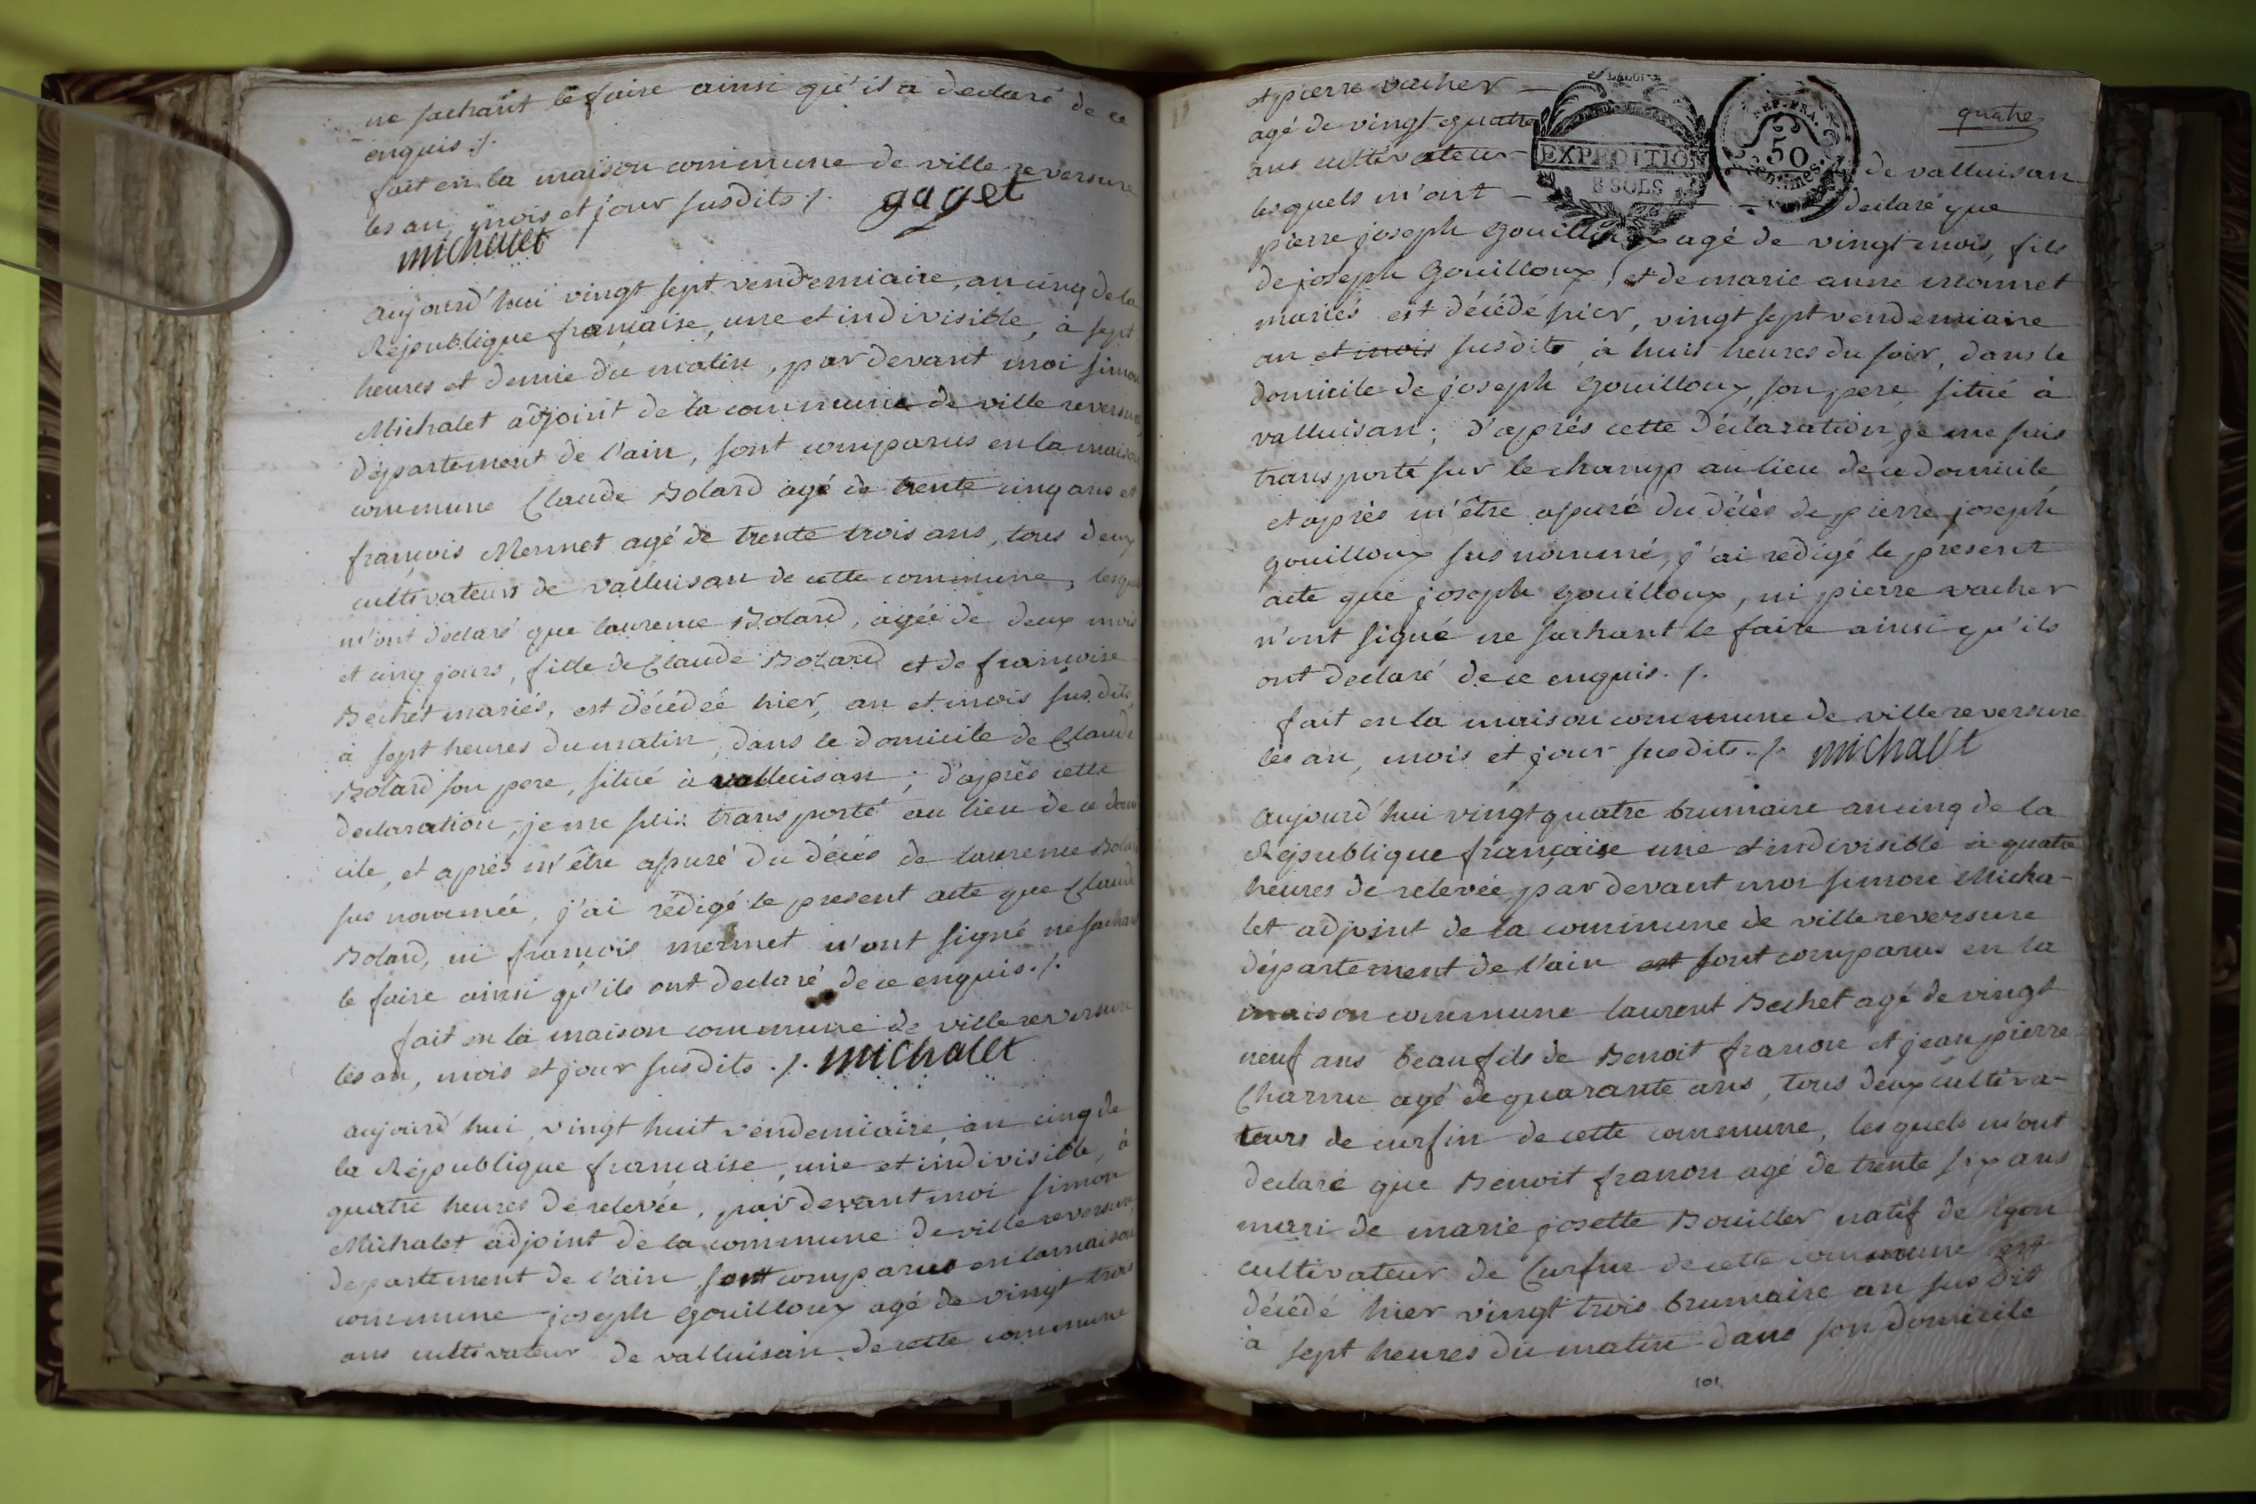 ne sachant le faire ainsi qu'il a declaré de ce
enquis ./.
fait en la maison commune de ville reversure
les an, mois et jour susdits ./. gaget
michalet
aujourd'hui vingt sept vendemiaire, an cinq de la
République française, une et indivisible, à sept
heures et demie du matin, par devant moi simon
Michalet adjoint de la commune de ville reversure
département de l'ain, sont comparus en la maison
commune Claude Bolard agé de trente cinq ans et
françois Mermet agé de trente trois ans, tous deux
cultivateurs de valluisan de cette commune, lesquels
m'ont declaré que laurence Bolard, agée de deux mois
et cinq jours, fille de Claude Bolard et de françoise
Bechet mariés, est décédée hier, an et mois susdits
à sept heures du matin, dans le domicile de Claude
Bolard son pere, situé à valluisan ; d'après cette
declaration, je me suis transporté au lieu de ce domi
cile, et après m'être assuré du décès de laurence Bolard
sus nommée, j'ai rédigé le present acte que Claude
Bolard, ni françois mermet n'ont signé ne sachant
le faire ainsi qu'ils ont declaré de ce enquis ./.
fait en la maison commune de ville reversure
les an, mois et jour susdits ./. michalet
aujourd'hui, vingt huit vendemiaire, an cinq de
la République française, une et indivisible, à
quatre heures de relevée, par devant moi simon
Michalet adjoint de la commune de ville reversure
departement de l'ain sont comparus en la maison
commune joseph Gouilloux agé de vingt trois
ans cultivateur de valluisan de cette commune
quatre
et pierre vacher
agé de vingt quatre
ans cultivateur de valluisan
EXPEDITION
8 SOLS
REP. FRA.
50
Centimes.
lesquels m'ont declaré que
pierre joseph Gouilloux agé de vingt mois, fils
de joseph Gouilloux, et de marie anne Monnet
mariés est décédé hier, vingt sept vendemiaire
an et mois susdits, à huit heures du soir, dans le
domicile de joseph Gouilloux, son pere, situé à
valluisan ; d'après cette déclaration je me suis
transporté sur le champ au lieu de ce domicile
et après m'être assuré du décès de pierre joseph
gouilloux sus nommé, j'ai redigé le present
acte que joseph gouilloux, ni pierre vacher
n'ont signé ne sachant le faire ainsi qu'ils
ont declaré de ce enquis ./.
fait en la maison commune de ville reversure
les an, mois et jour susdits ./. michalet
aujourd'hui vingt quatre brumaire an cinq de la
République française une et indivisible à quatre
heures de relevée, par devant moi simon Micha-
let adjoint de la commune de ville reversure
département de l'ain est sont comparus en la
maison commune laurent Bechet agé de vingt
neuf ans beaufils de Benoit franon et jean pierre
Charnu agé de quarante ans, tous deux cultiva-
teurs de curfin de cette commune, lesquels m'ont
declaré que Benoit franon agé de trente six ans
mari de marie josette Bouiller natif de lyon
cultivateur de Curfin de cette commune est
décédé hier vingt trois brumaire an susdit
à sept heures du matin dans son domicile
101